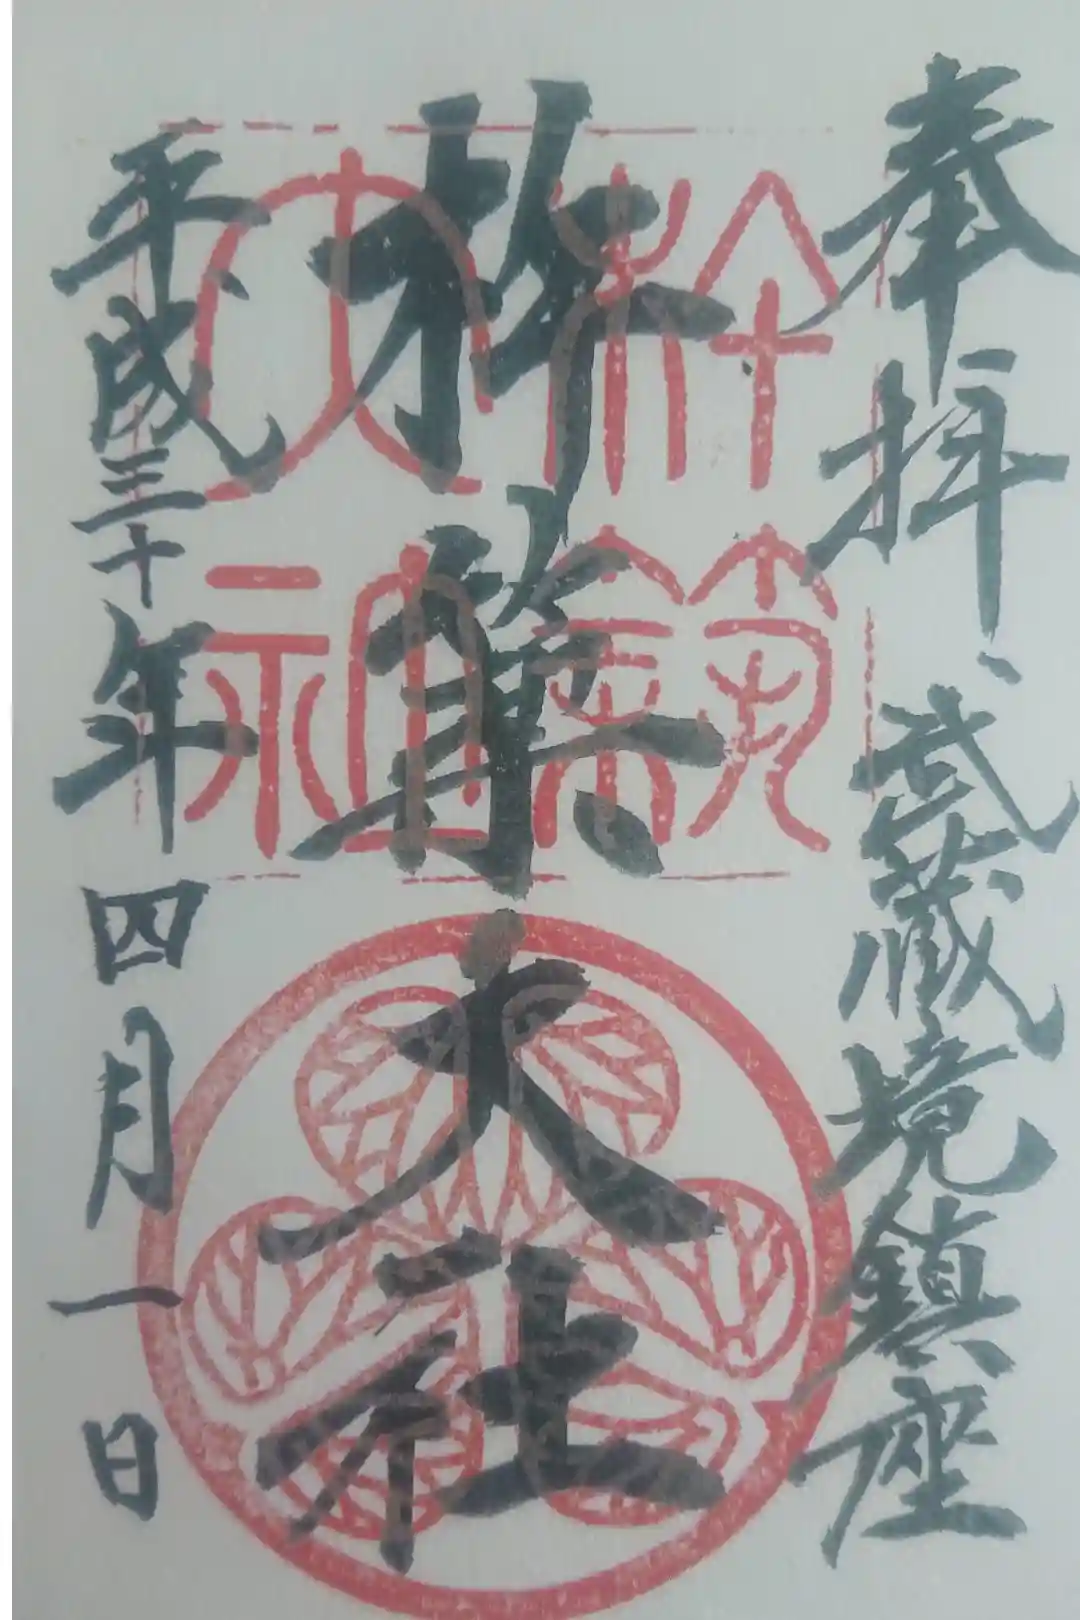 奉拝、武蔵境鎮座
杵築大社
平成三十年四月一日
杵築
大神